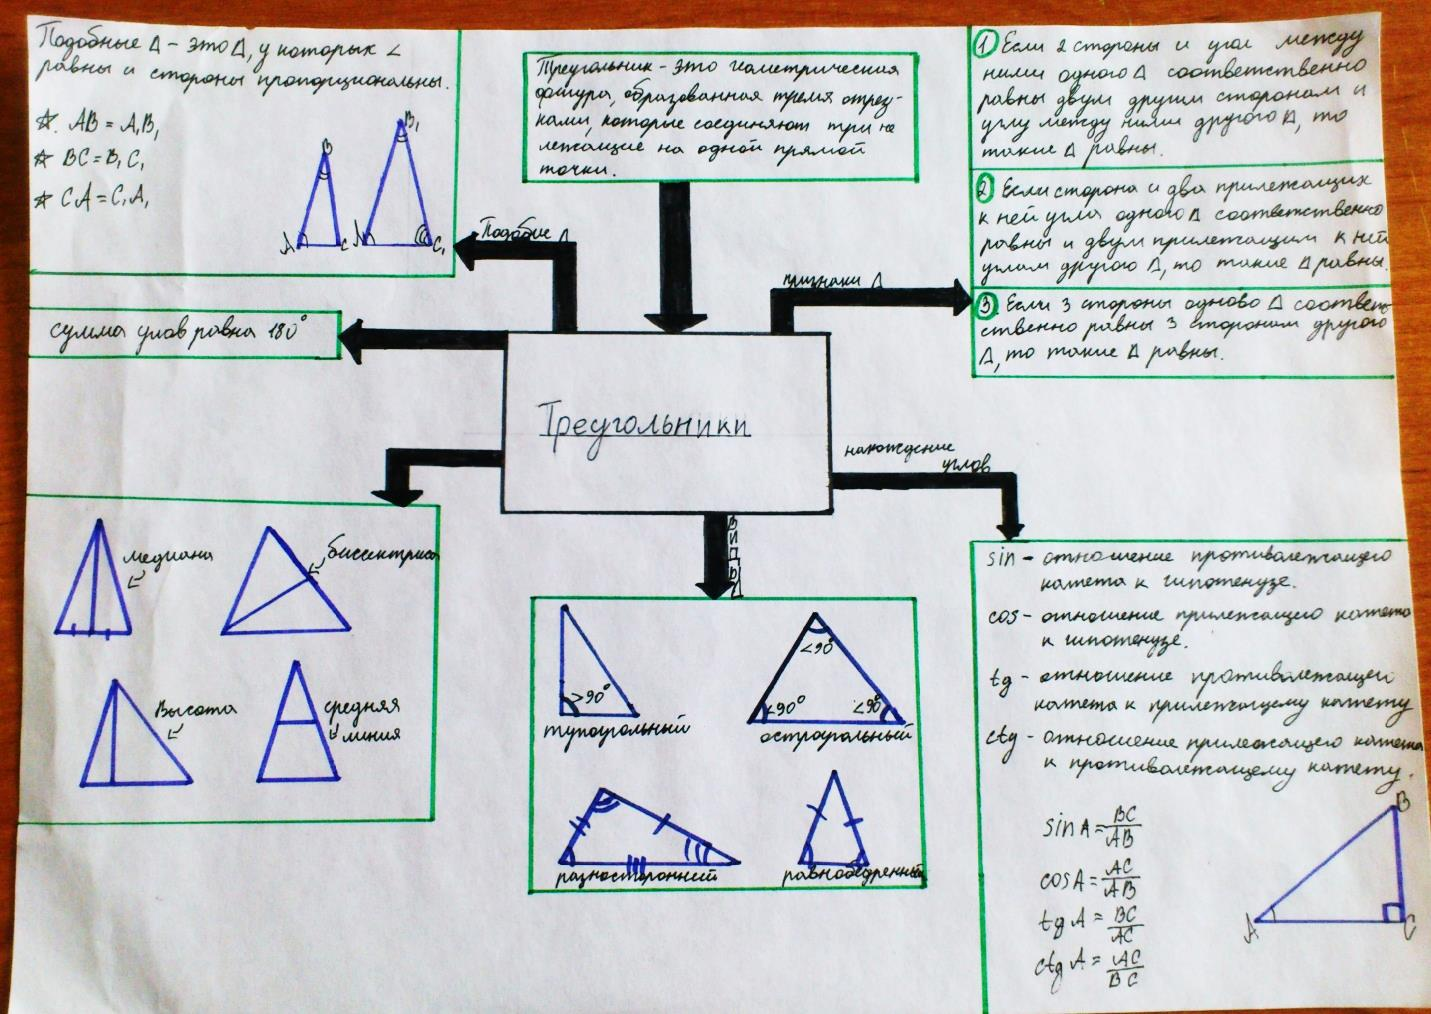 Подобные Δ - это Δ, у которых ∠
равны и стороны пропорциональны.
☆ AB = A₁B₁
☆ BC = B₁C₁
☆ CA = C₁A₁
B
A
C
B₁
A₁
C₁
Треугольник - это геометрическая
фигура, образованная тремя отрез-
ками, которые соединяют три не
лежащие на одной прямой
точки.
1) Если 2 стороны и угол между
ними одного Δ соответственно
равны двум другим сторонам и
углу между ними другого Δ, то
такие Δ равны.
2) Если сторона и два прилежащих
к ней угла одного Δ соответственно
равны и двум прилежащим к ней
углам другого Δ, то такие Δ равны.
3. Если 3 стороны одново Δ соответ-
ственно равны 3 сторонам другого
Δ, то такие Δ равны.
Подобие Δ
признаки Δ
сумма углов равна 180°
Треугольники
нахождение
углов
виды Δ
медиана
биссектриса
Высота
средняя
линия
>90°
тупоугольный
<90°
<90°
<90°
остроугольный
разносторонний
равнобедренный
sin - отношение противолежащего
катета к гипотенузе.
cos - отношение прилежащего катета
к гипотенузе.
tg - отношение противолежащего
катета к прилежащему катету
ctg - отношение прилежащего катета
к противолежащему катету.
sin A = BC/AB
cos A = AC/AB
tg A = BC/AC
ctg A = AC/BC
B
A
C